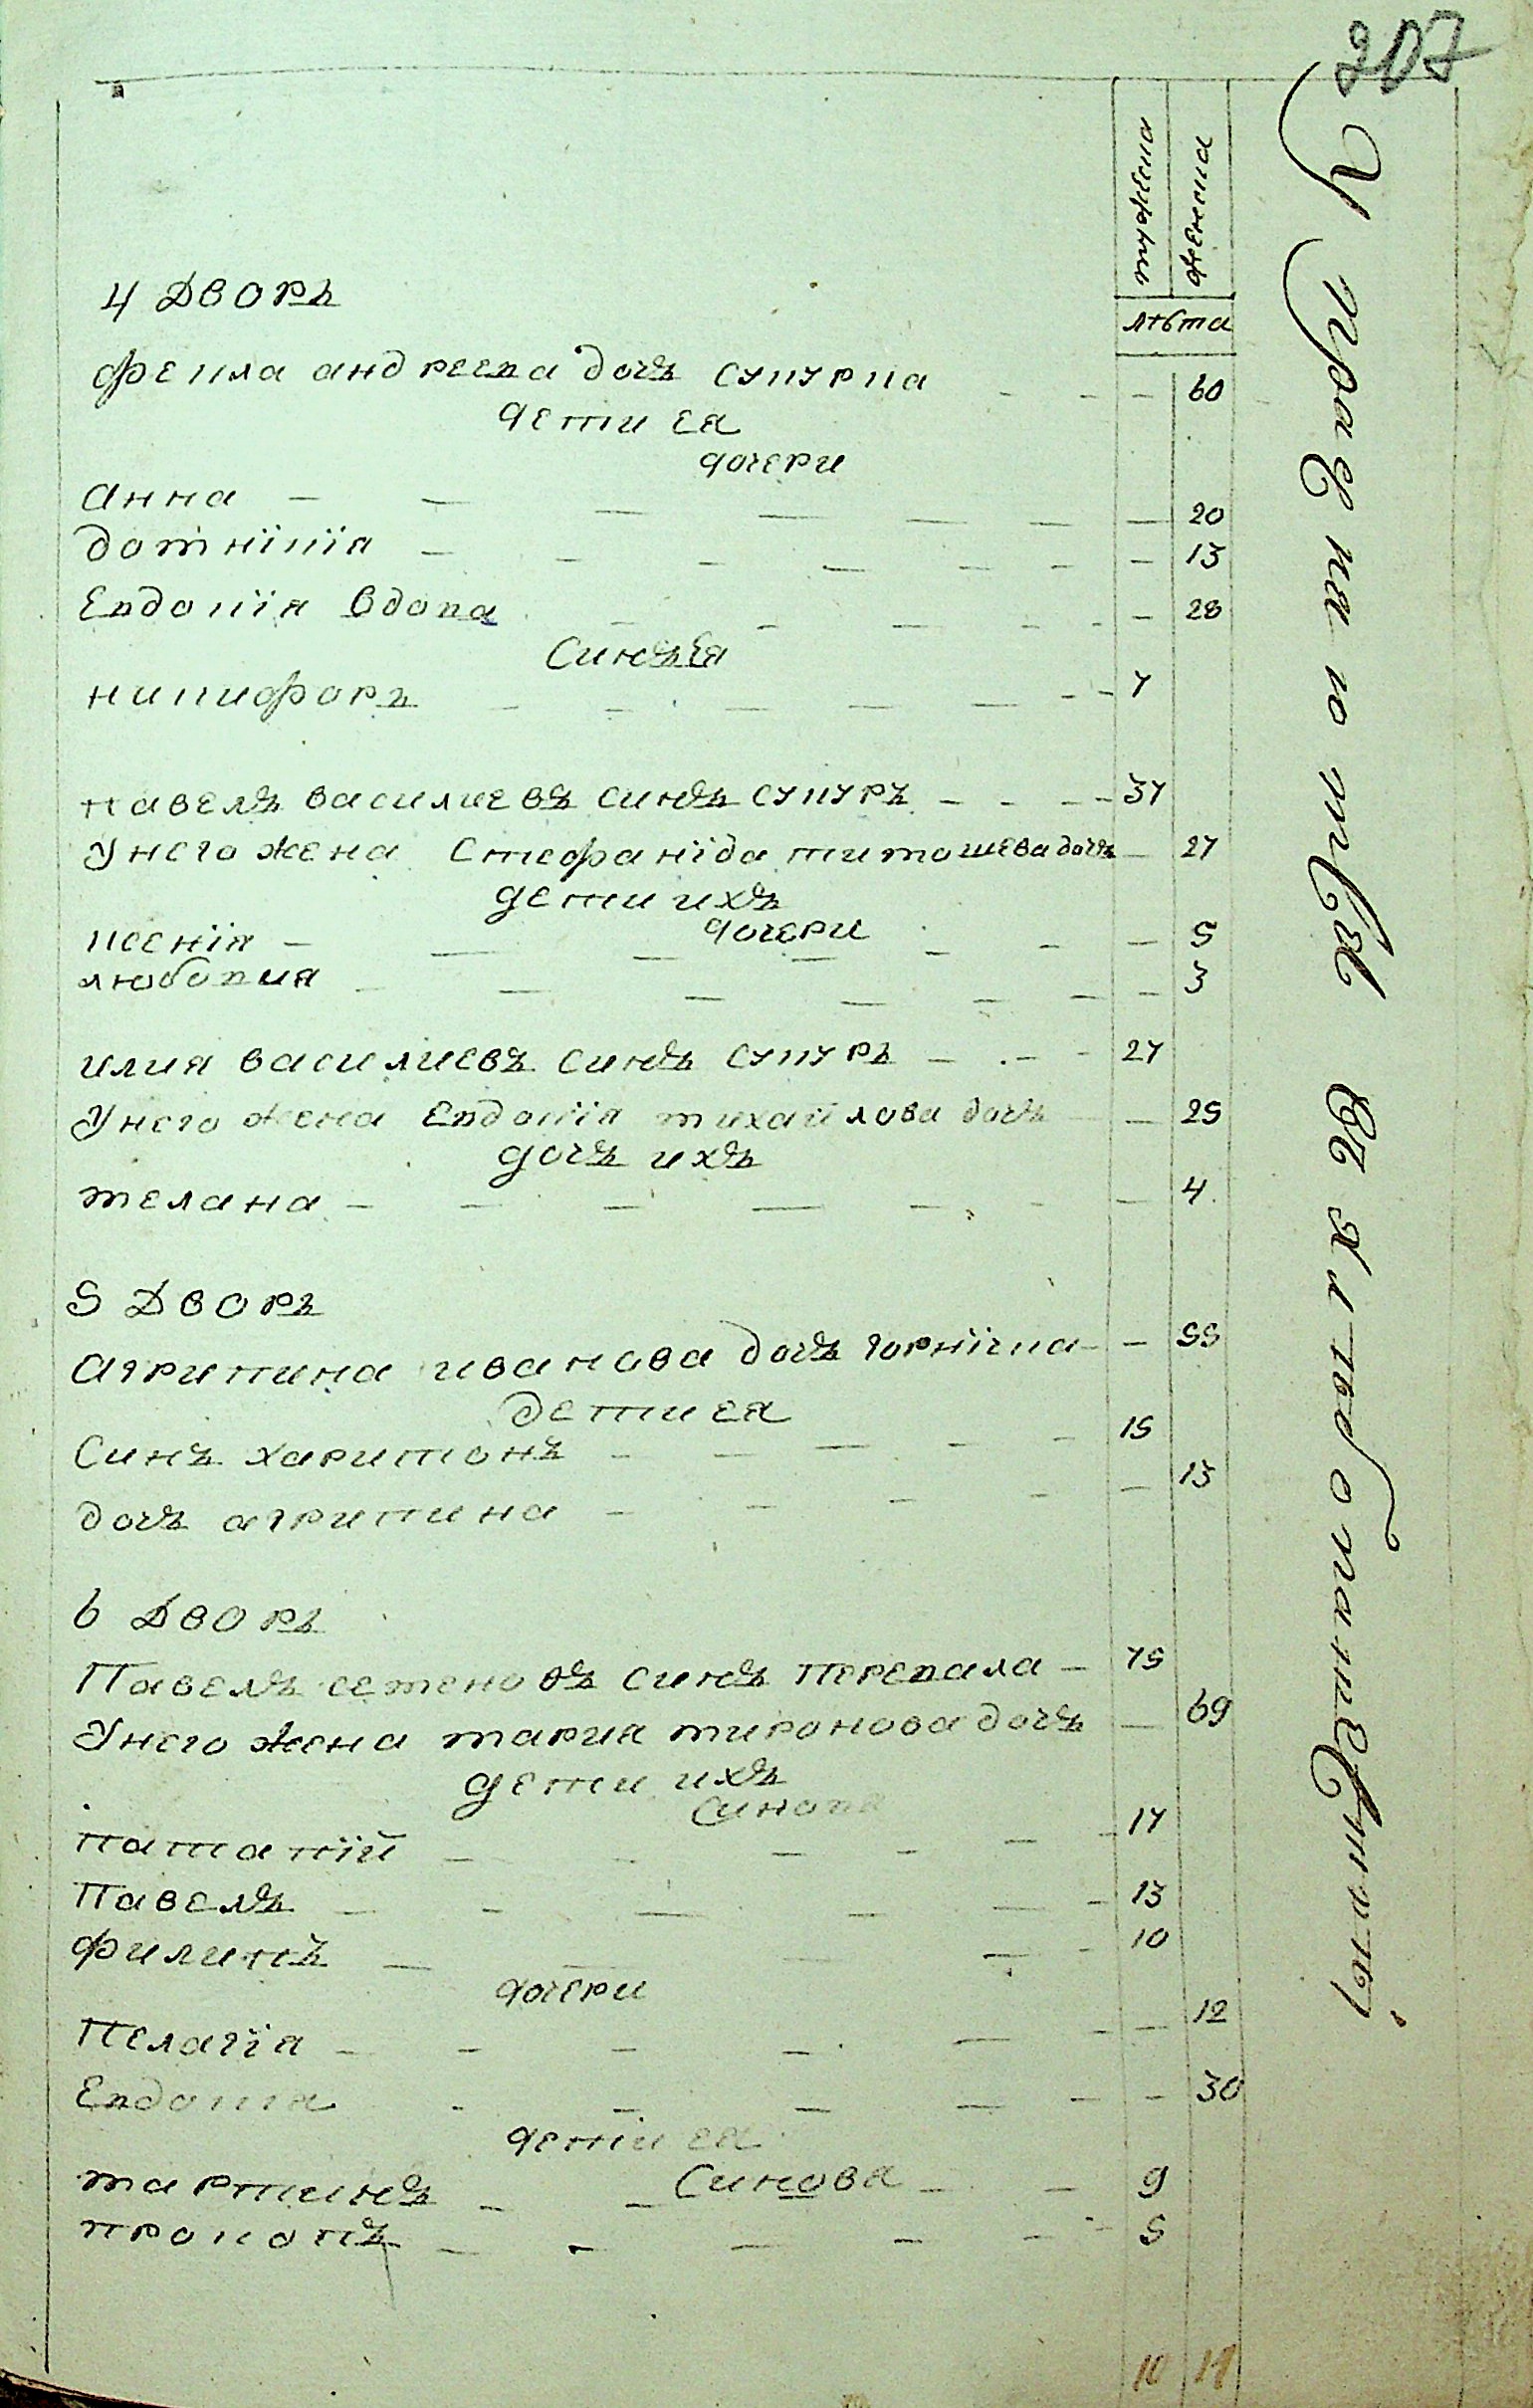 207
мужеска
женска
лѣта
4 Дворъ
фекла андреева дочъ сукурка - - - 60
дети ея
дочери
анна - 20
домнікія - 13
Евдокія вдова - 28
Синъ Ея
никифоръ - 7
павелъ василиевъ синъ сукуръ - 37
Унего жена Стефаніда тимошева дочъ - 27
дети ихъ
дочери
ксенія - 5
любовия - 3
илия василиевъ синъ сукуръ - 27
Унего жена Евдокія михайлова дочъ - 25
дочъ ихъ
мелана - 4
5 Дворъ
агрипина иванова дочъ горнічка - 55
дети ея
Синъ харитонъ - 15
дочъ агрипина - 13
6 Дворъ
Павелъ семеновъ синъ перевала - 75
Унего жена мария миронова дочъ - 69
дети ихъ
синова
патапій - 17
Павелъ - 13
филипъ - 10
дочери
Пелагія - 12
Евдокия - 30
дети ея
Синова
мартинъ - 9
прокопъ - 5
10 17